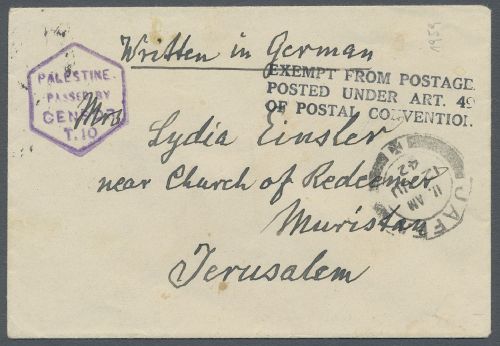 Written in German
1959
EXEMPT FROM POSTAGE.
POSTED UNDER ART. 49
OF POSTAL CONVENTION.
PALESTINE.
PASSED BY
CENSOR
T.10
Mrs
Lydia Einsler
near Church of Redeemer
Muristan
Jerusalem
JAFFA
11 AM
JU
42